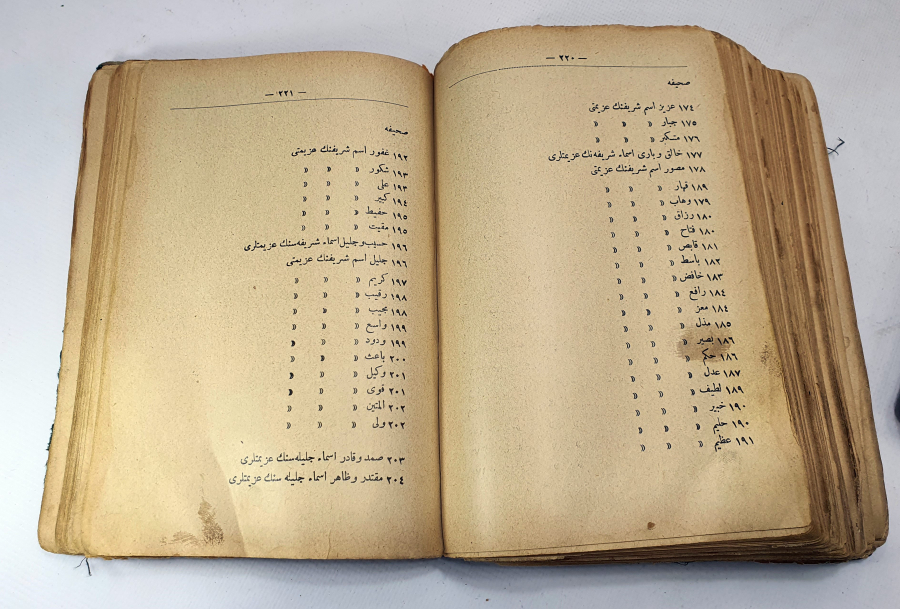 — ٢٢٠ —
صحيفه
١٧٤ عزيز اسم شريفنك عزيمتى
١٧٥ جبار » » »
١٧٦ متكبر » » »
١٧٧ خالق وبارى اسماء شريفه‌نك عزيمتلرى
١٧٨ مصور اسم شريفنك عزيمتى
١٨٩ قهار » » »
١٧٩ وهاب » » »
١٨٠ رزاق » » »
١٨٠ فتاح » » »
١٨١ قابض » » »
١٨٢ باسط » » »
١٨٣ خافض » » »
١٨٤ رافع » » »
١٨٤ معز » » »
١٨٥ مذل » » »
١٨٦ بصير » » »
١٨٦ حكم » » »
١٨٧ عدل » » »
١٨٩ لطيف » » »
١٩٠ خبير » » »
١٩٠ حليم » » »
١٩١ عظيم » » »
— ٢٢١ —
صحيفه
١٩٢ غفور اسم شريفنك عزيمتى
١٩٣ شكور » » »
١٩٣ على » » »
١٩٤ كبير » » »
١٩٥ حفيظ » » »
١٩٥ مقيت » » »
١٩٦ حسيب وجليل اسماء شريفه‌سنك عزيمتلرى
١٩٦ جليل اسم شريفنك عزيمتى
١٩٧ كريم » » »
١٩٨ رقيب » » »
١٩٨ مجيب » » »
١٩٩ واسع » » »
١٩٩ ودود » » »
٢٠٠ باعث » » »
٢٠١ وكيل » » »
٢٠١ قوى » » »
٢٠٢ المتين » » »
٢٠٢ ولى » » »
٢٠٣ صمد وقادر اسماء جليله‌سنك عزيمتلرى
٢٠٤ مقتدر وظاهر اسماء جليله سنك عزيمتلرى